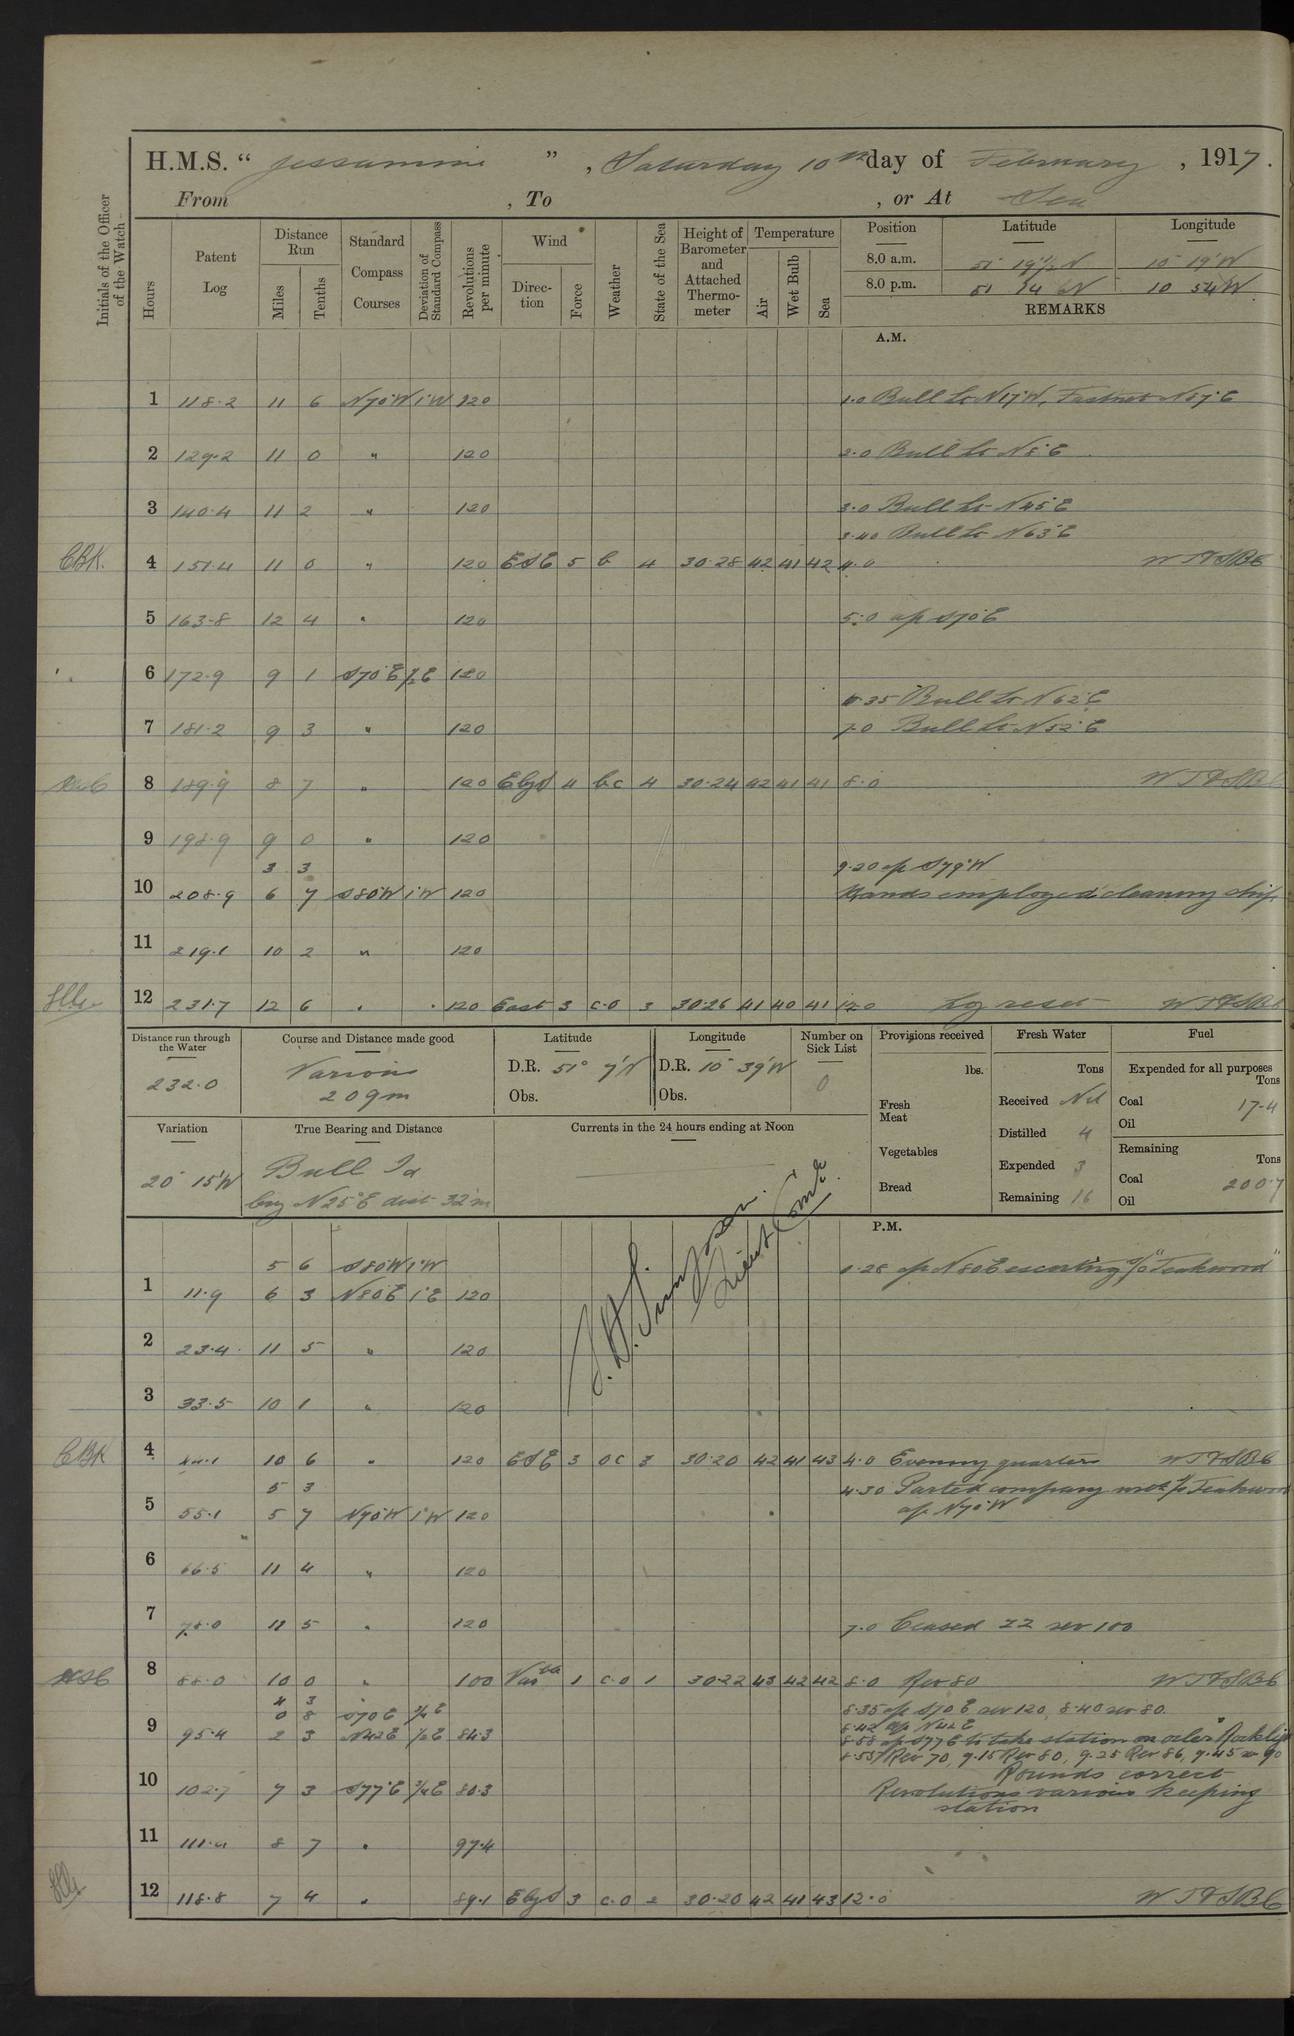 H.M.S. “ Jessamine ” , Saturday 10th day of February , 1917.
From , To , or At Sea
Initials of the Officer of the Watch
Hours
Patent Log
Distance Run
Miles
Tenths
Standard Compass Courses
Deviation of Standard Compass
Revolutions per minute
Wind
Direction
Force
Weather
State of the Sea
Height of Barometer and Attached Thermometer
Temperature
Air
Wet Bulb
Sea
Position Latitude Longitude
8.0 a.m. 51° 19½ N 10° 19' W
8.0 p.m. 51 14 N 10 54 W
REMARKS
A.M.
1 118.2 11 6 N70°W 1°W 120 1.0 Bull Lt N17°W, Fastnet N87°E
2 129.2 11 0 " 120 2.0 Bull Lt N8°E
3 140.4 11 2 " 120 3.0 Bull Lt N45°E
3.40 Bull Lt N63°E
CBK. 4 151.4 11 0 " 120 ESE 5 b 4 30.28 42 41 42 4.0 WT&SBE
5 163.8 12 4 " 120 5.0 a/c S70°E
6 172.9 9 1 S70°E ½E 120
6.35 Bull Lt N62°E
7 181.2 9 3 " 120 7.0 Bull Lt N52°E
8 189.9 8 7 " 120 EbyS 4 bc 4 30.24 42 41 41 8.0 WT&SBE
9 198.9 9 0 " 120
3 3 9.20 a/c S79°W
10 208.9 6 7 S80°W 1°W 120 Hands employed cleaning ship
11 219.1 10 2 " 120
12 231.7 12 6 " " 120 East 3 c.o 3 30.26 41 40 41 12.0 Log reset WT&SBE
Distance run through the Water
232.0
Course and Distance made good
Various
209m
Latitude
D.R. 51° 7'N
Obs.
Longitude
D.R. 10° 39'W
Obs.
Number on Sick List
0
Provisions received
lbs.
Fresh Meat
Vegetables
Bread
Fresh Water
Tons
Received Nil
Distilled 4
Expended 3
Remaining 16
Fuel
Expended for all purposes
Tons
Coal 17.4
Oil
Remaining
Tons
Coal 200.7
Oil
Variation
20° 15'W
True Bearing and Distance
Bull Id
brg N25°E dist 32'm
Currents in the 24 hours ending at Noon
S.H. Simpson.
Lieut Comdr
P.M.
5 6 S80°W 1°W 0.28 a/c N80E escorting s/s "Teakwood"
1 11.9 6 3 N80E 1°E 120
2 23.4 11 5 " 120
3 33.5 10 1 " 120
CBK 4 44.1 10 6 " 120 ESE 3 oc 3 30.20 42 41 43 4.0 Evening quarters WT&SBE
5 3 4.30 Parted company with s/s Teakwood
5 55.1 5 7 N70°W 1°W 120 a/c N70°W
6 66.5 11 4 " 120
7 78.0 11 5 " 120 7.0 Ceased ZZ rev 100
8 88.0 10 0 " 100 Varble 1 c.o 1 30.22 43 42 42 8.0 Rev 80 WT&SBE
4 3 "
0 8 S70E ¾E 8.35 a/c S70E rev 120, 8.40 rev 80.
8.42 a/c N42E
9 95.4 2 3 N42E ½E 84.3 8.58 a/c S77E to take station on oiler
8.55 Rev 70, 9.15 Rev 80, 9.25 Rev 86, 9.45 rev 90
Rounds correct
10 102.7 7 3 S77°E ¾E 80.3 Revolutions various keeping
station
11 111.4 8 7 " 97.4
12 118.8 7 4 " 89.1 EbyS 3 c.o 2 30.20 42 41 43 12.0 WT&SBE